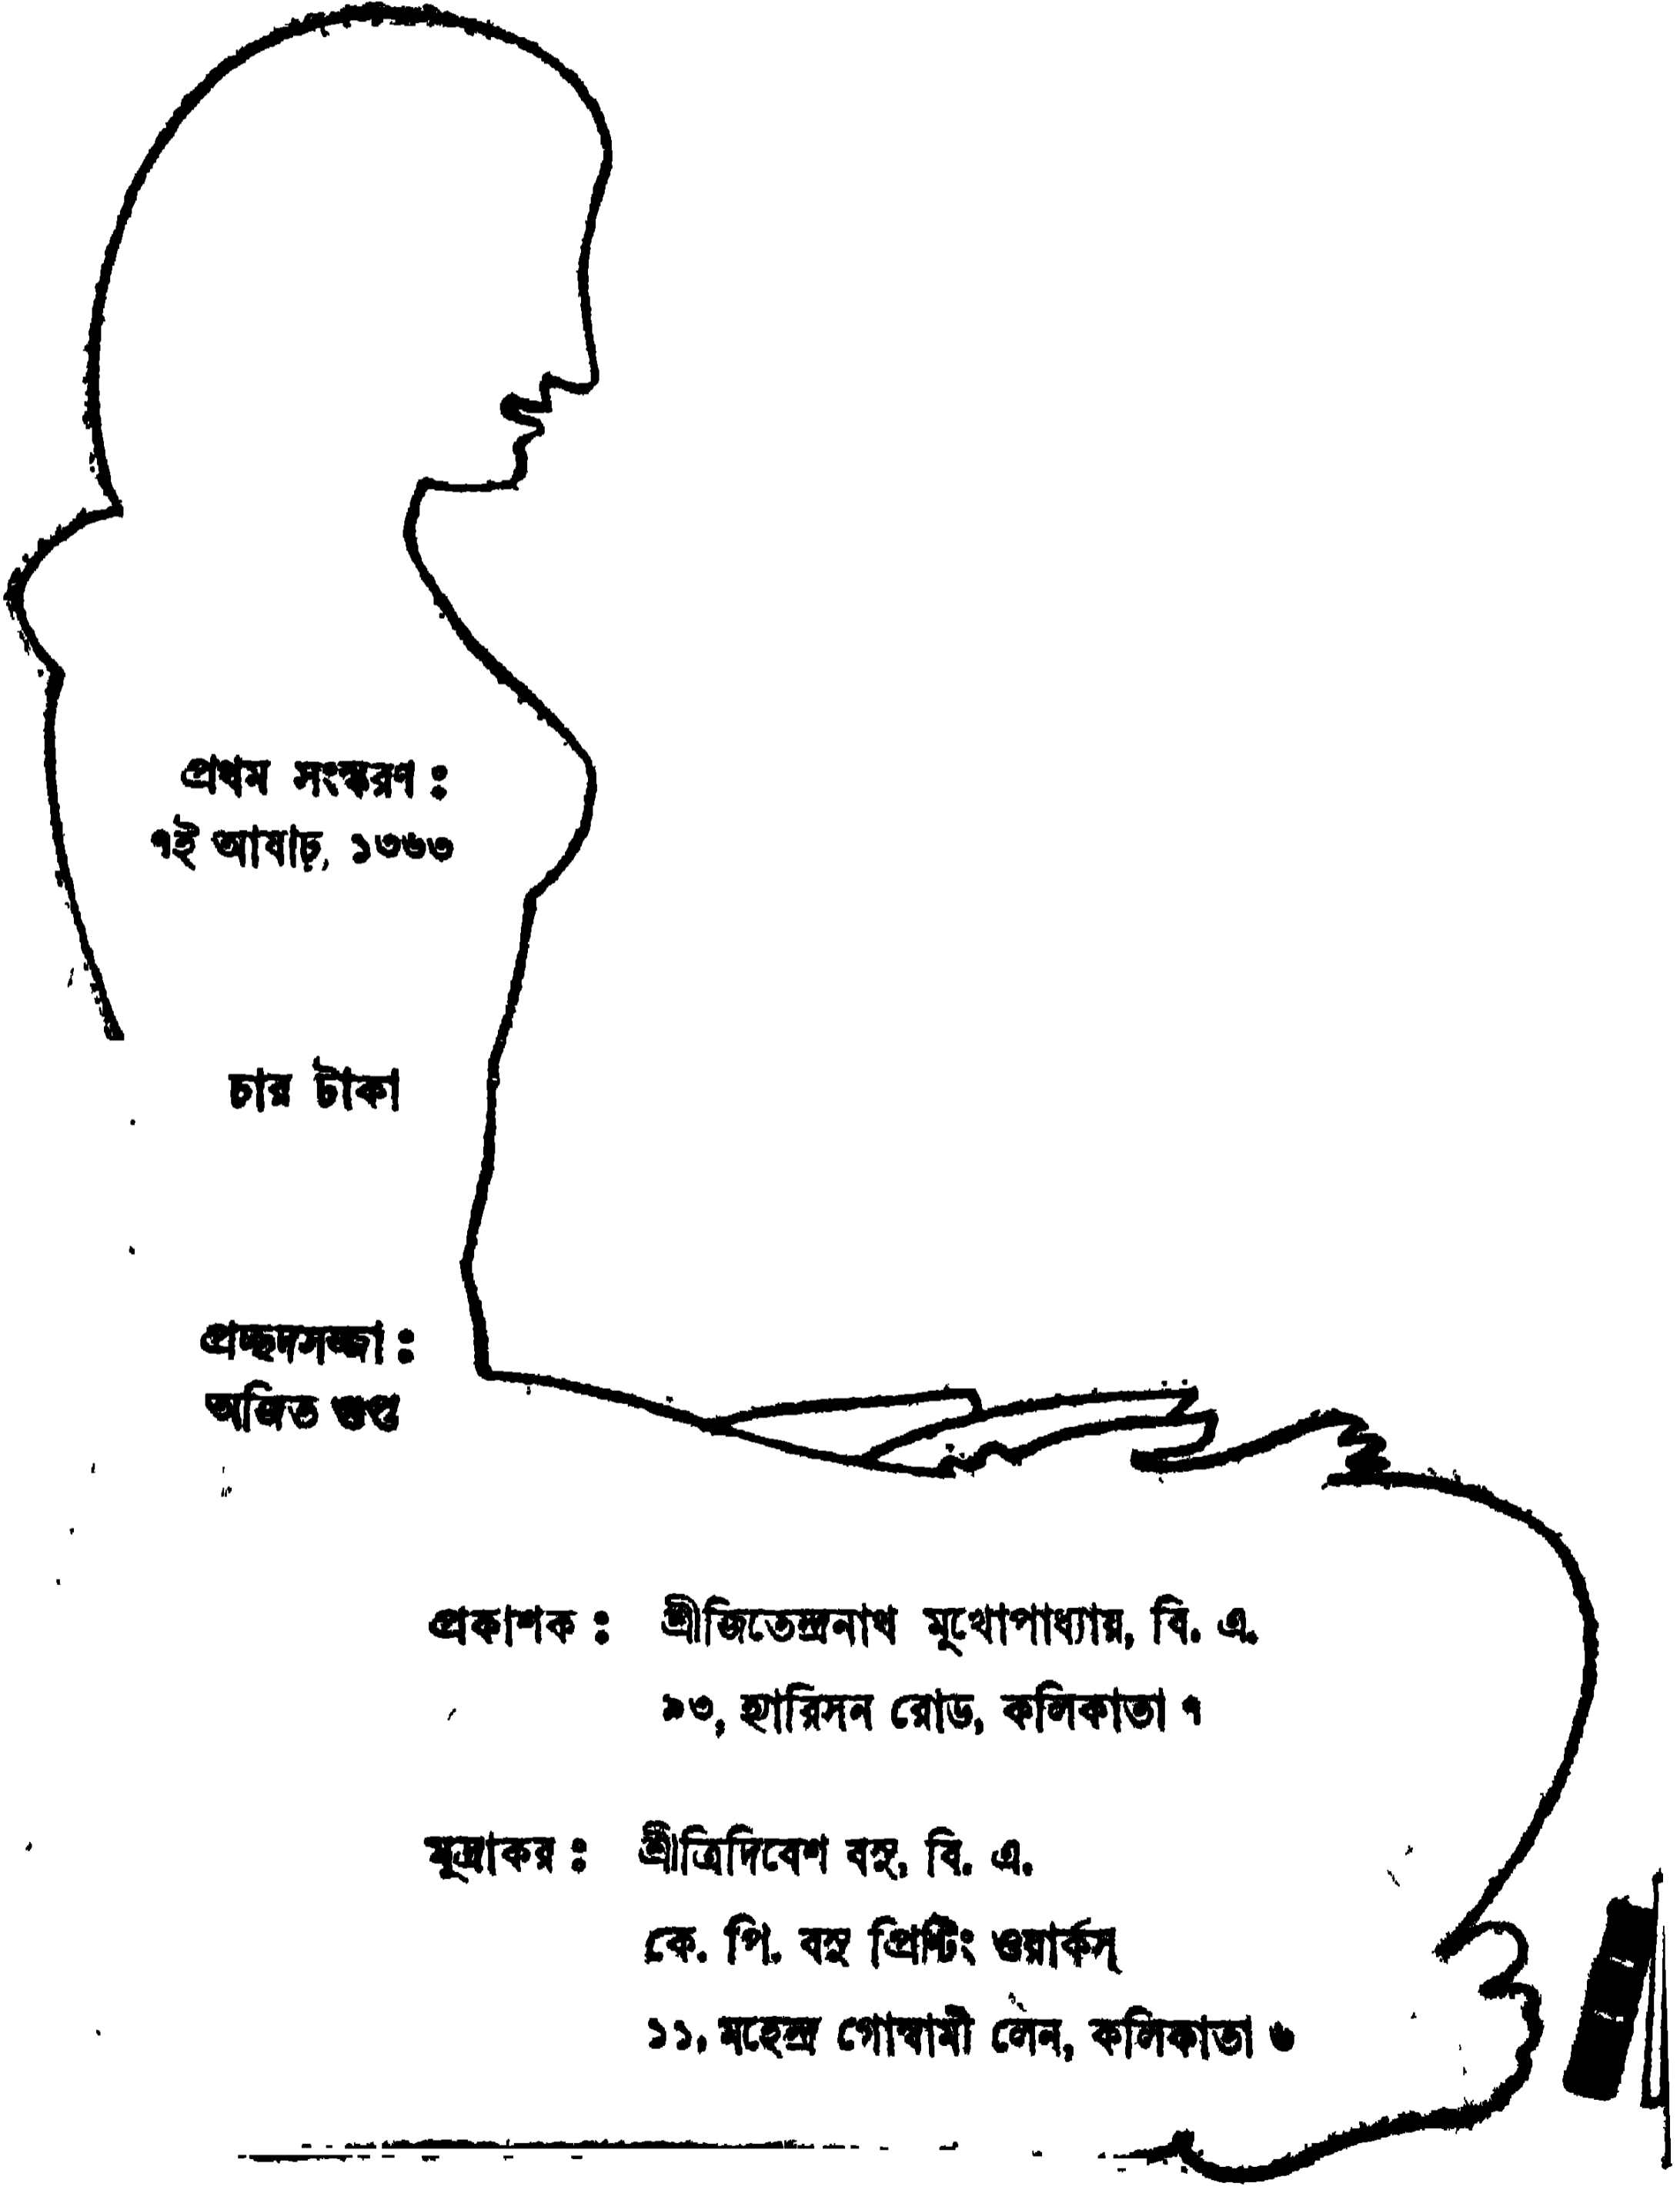 প্রথম সংস্করণ :
৭ই আষাঢ়, ১৩৬৩
চার টাকা
প্রচ্ছদসজ্জা :
অজিত গুপ্ত
প্রকাশক : শ্রীজিতেন্দ্রনাথ মুখোপাধ্যায়, বি. এ.
৯৩, হ্যারিসন রোড, কলিকাতা ৭
মুদ্রাকর : শ্রীত্রিদিবেশ বসু, বি. এ.
কে. পি. বসু প্রিন্টিং ওয়ার্কস্
১১, মহেন্দ্র গোস্বামী লেন, কলিকাতা ৬